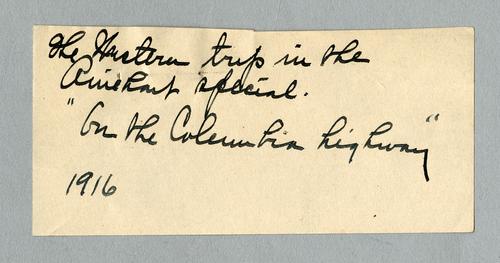 The Western trip in the
Rinehart special.
"On the Columbia highway"
1916